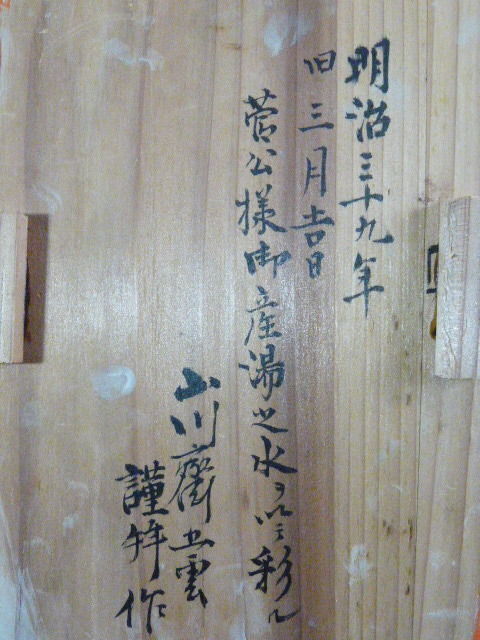 明治三十九年
旧三月吉日
菅公様御産湯之水ヲ以テ彩ル
山川齊五雲
謹拝作